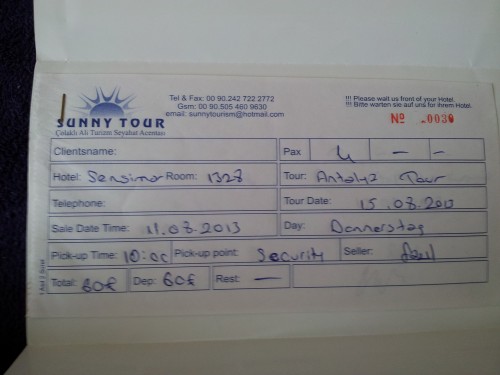 Tel & Fax: 00 90.242 722 2772
Gsm: 00 90.505 460 9630
email: sunnytourism@hotmail.com
!!! Please wait us front of your Hotel.
!!! Bitte warten sie auf uns for ihrem Hotel.
SUNNY TOUR
Çolaklı Ali Turizm Seyahat Acentası
№ 0030
Clientsname: Pax 4 – –
Hotel: Sensimar Room: 1328 Tour: Antalya Tour
Telephone: Tour Date: 15.08.2013
Sale Date Time: 11.08.2013 Day: Donnerstag
Pick-up Time: 10:00 Pick-up point: Security Seller:
Total: 60€ Dep: 60€ Rest: —